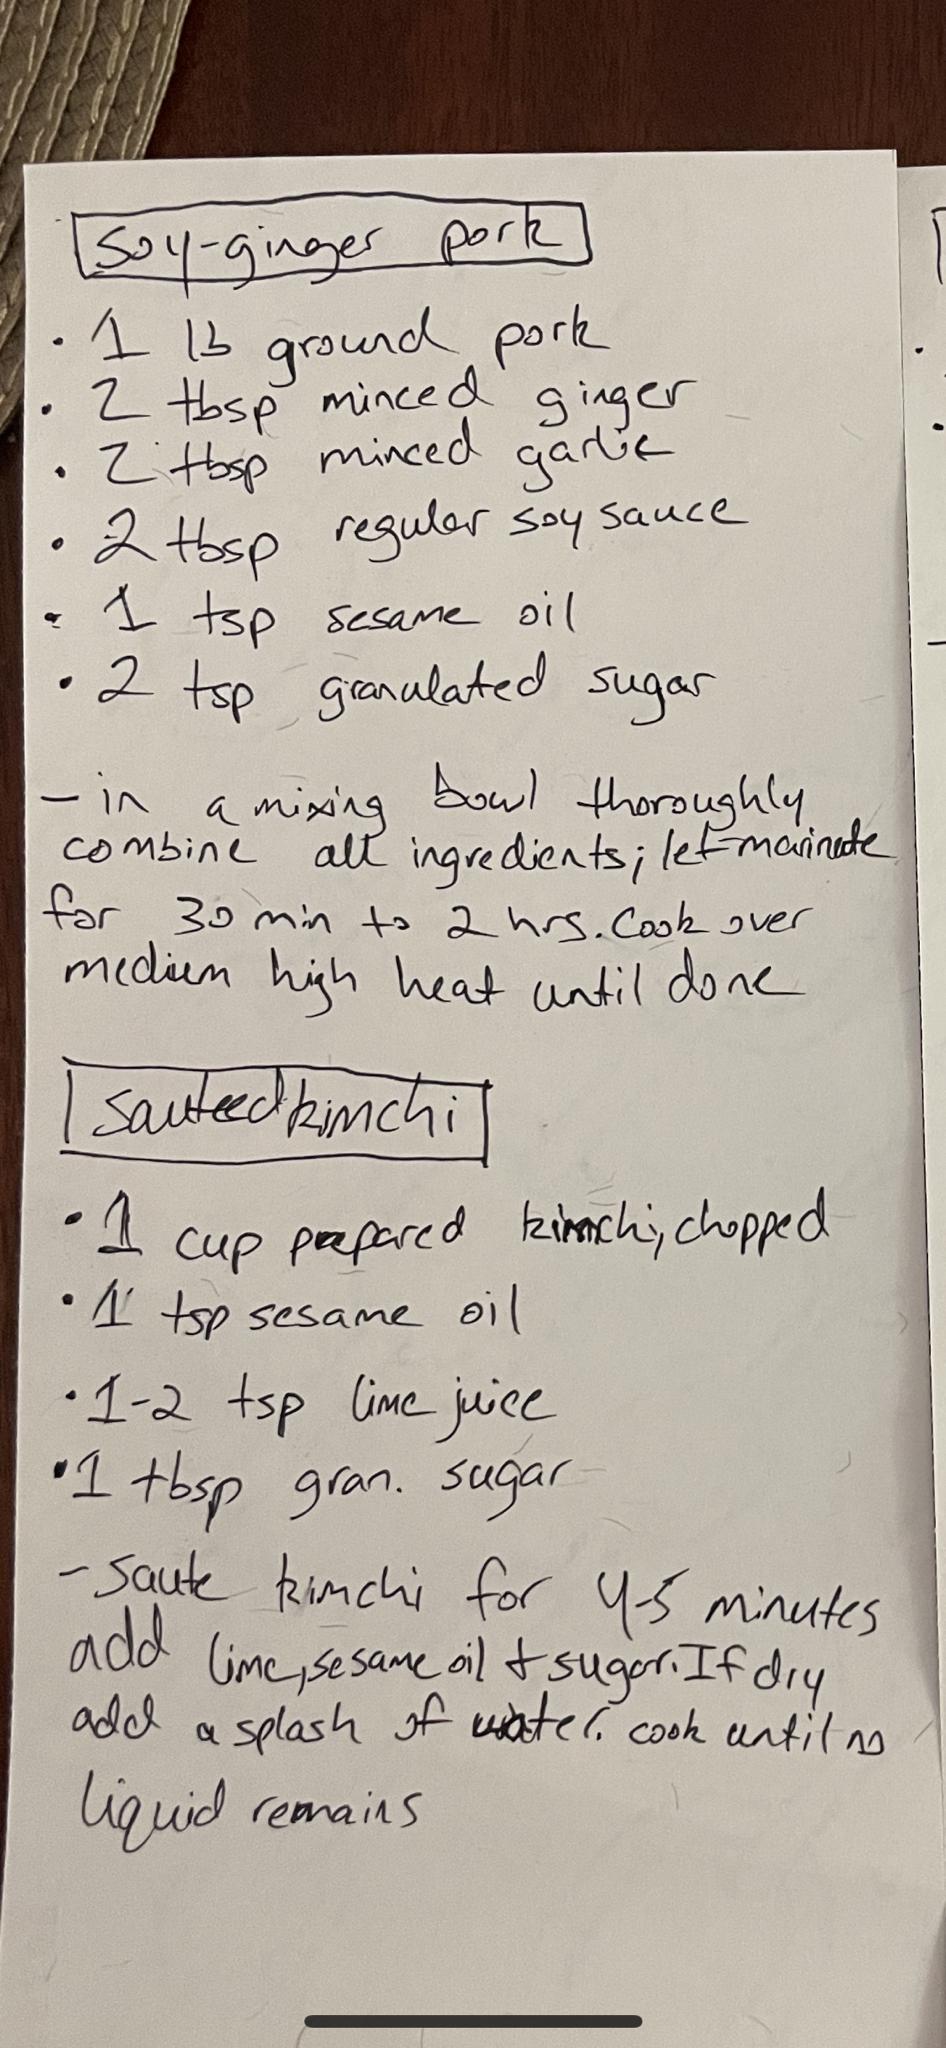 soy-ginger pork
· 1 lb ground pork
· 2 tbsp minced ginger
· 2 tbsp minced garlic
· 2 tbsp regular soy sauce
· 1 tsp sesame oil
· 2 tsp granulated sugar
- in a mixing bowl thoroughly
combine all ingredients; let marinate
for 30 min to 2 hrs. Cook over
medium high heat until done
sauteed kimchi
· 1 cup prepared kimchi, chopped
· 1 tsp sesame oil
· 1-2 tsp lime juice
· 1 tbsp gran. sugar
- saute kimchi for 4-5 minutes
add lime, sesame oil + sugar. If dry
add a splash of water. cook until no
liquid remains